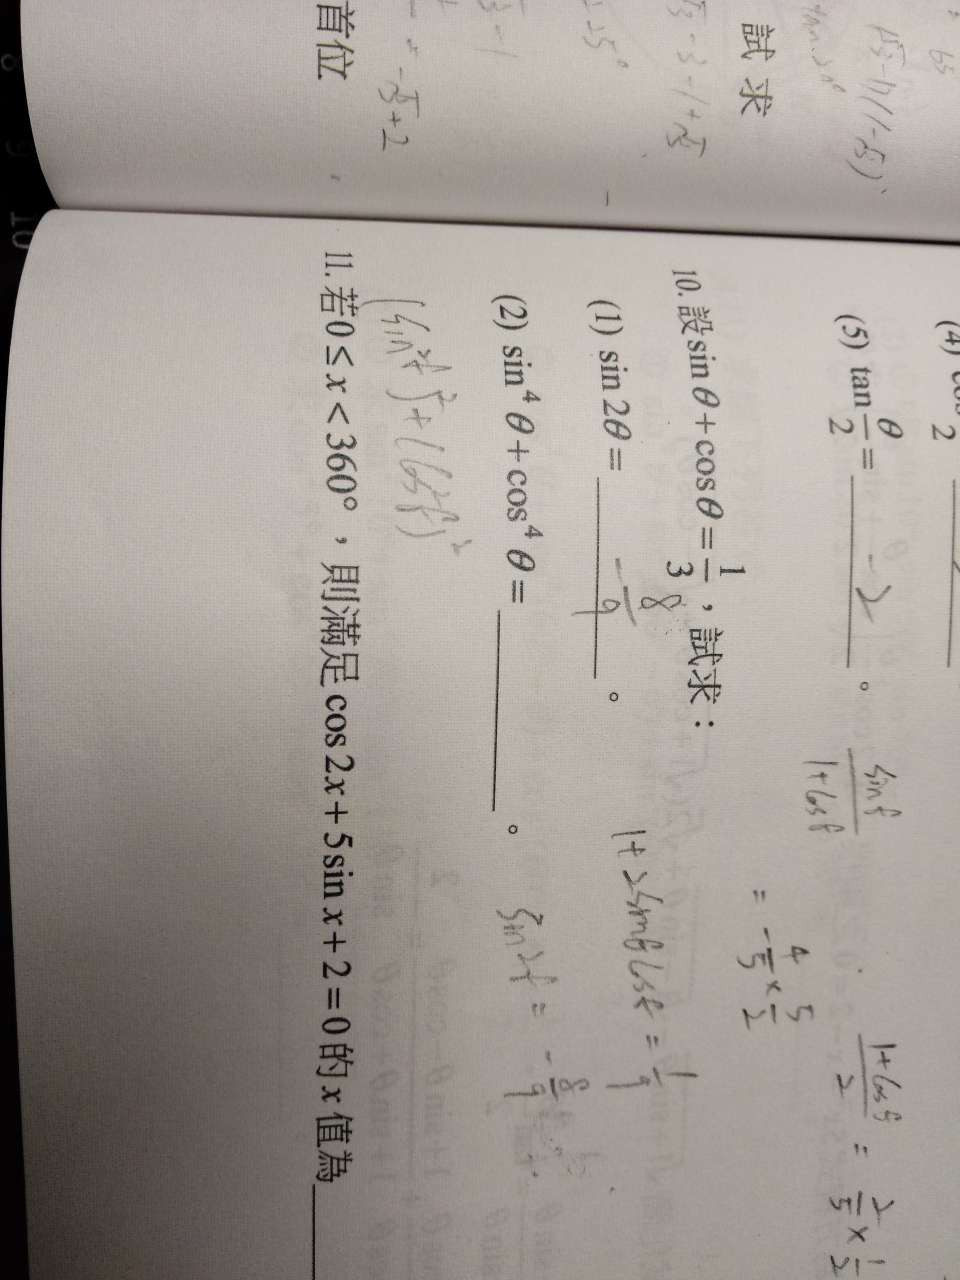 試求
首位
-√3+2
(5) tan θ/2 = -2 。
sinθ/1+cosθ
= -4/5 × 5/2
1+cosθ/2 = 2/5 × 1/2
10. 設 sin θ + cos θ = 1/3，試求：
(1) sin 2θ = -8/9 。
1+2sinθcosθ = 1/9
(2) sin⁴ θ + cos⁴ θ = 。
sin2θ = -8/9
(sin²θ)²+(cos²θ)²
11. 若 0 ≤ x < 360°，則滿足 cos 2x + 5 sin x + 2 = 0 的 x 值為